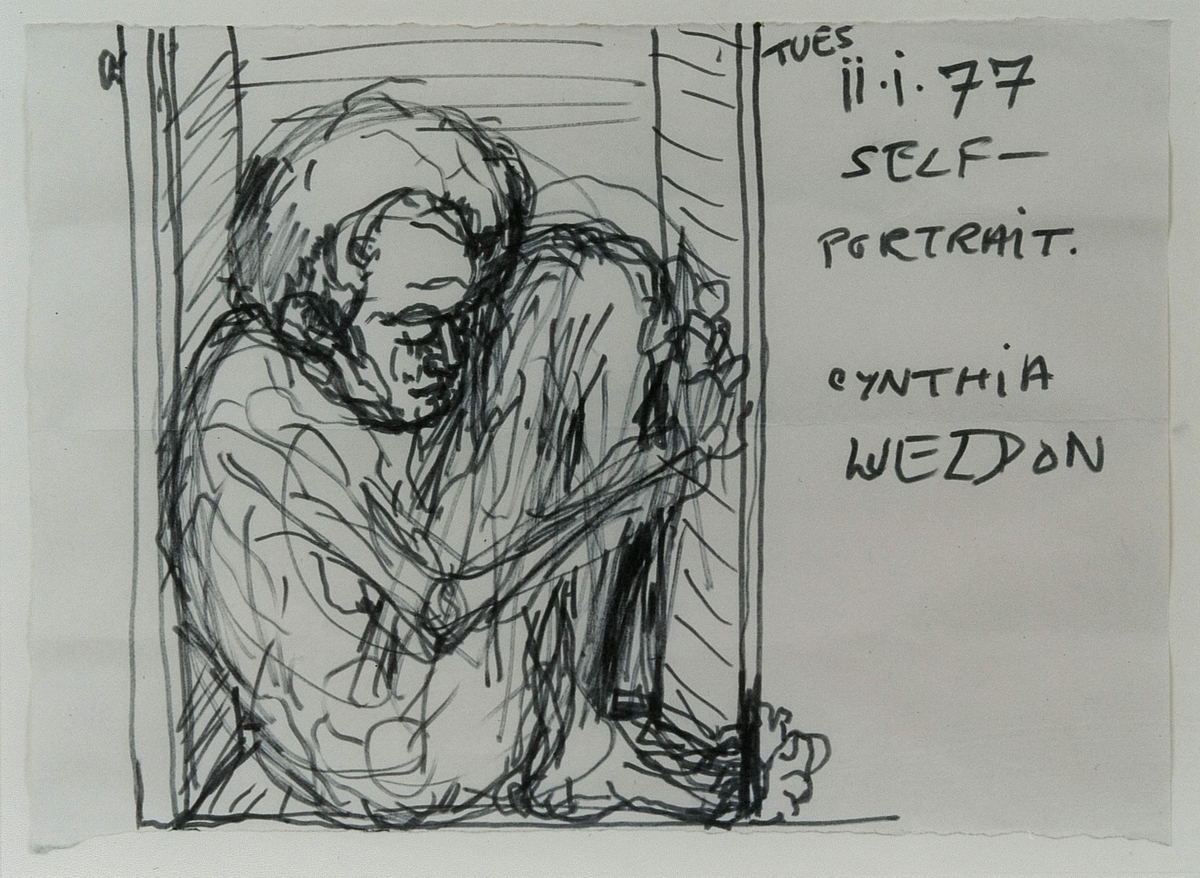 TUES
ii·i·77
SELF—
PORTRAIT.
CYNTHIA
WELDON